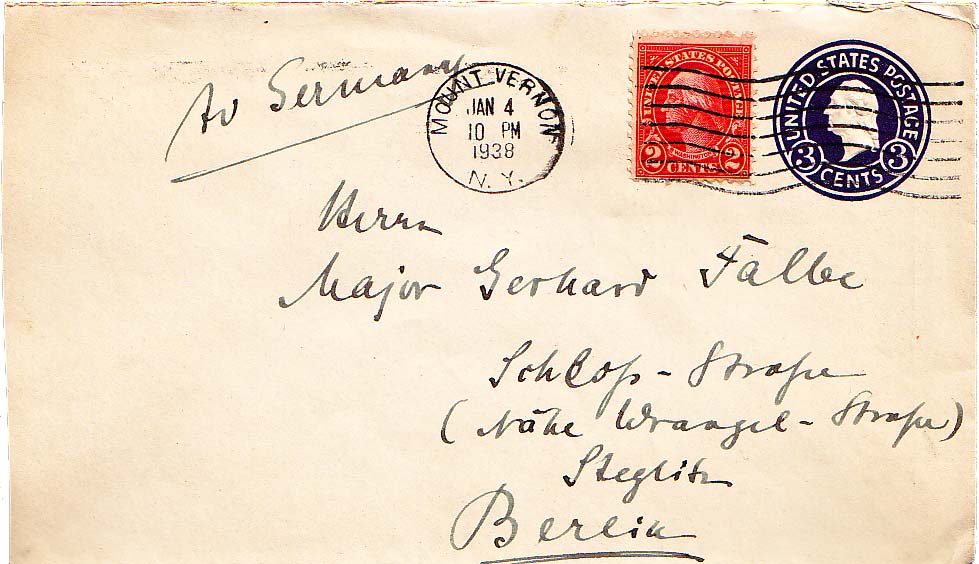 to Germany
MOUNT VERNON
JAN 4
10 PM
1938
N. Y.
UNITED STATES POSTAGE
WASHINGTON
2 CENTS 2
UNITED STATES POSTAGE
3 CENTS 3
Herrn
Major Gerhard Falbe
Schloß-Straße
(Nähe Wrangel-Straße)
Steglitz
Berlin